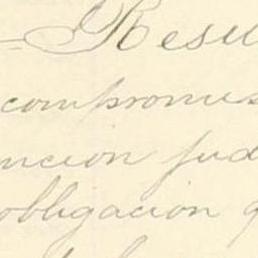 Resu
compromis
ncion jud
obligacion q